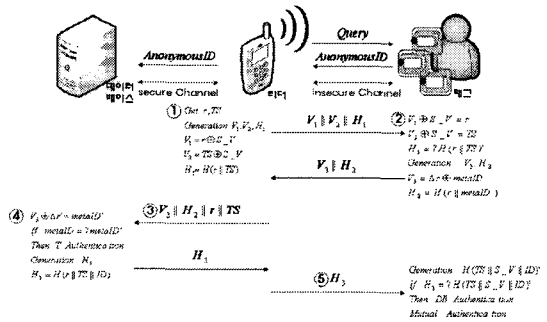 Query
AnonymousID
AnonymousID
secure Channel
insecure Channel
데이터
베이스
리더
태그
① Get r,TS
Generation V₁,V₂,H₁
V₁=r⊕S_V
V₂=TS⊕S_V
H₁=H(r‖TS)
V₁‖V₂‖H₁
② V₁⊕S_V=r
V₂⊕S_V=TS
H₁=?H(r‖TS)'
Generation V₃ H₂
V₃=Δr⊕metaID
H₂=H(r‖metaID)
V₃‖H₂
③ V₃‖H₂‖r‖TS
④ V₃⊕Δr=metaID'
if metaID=?metaID'
Then T Authentication
Generation H₃
H₃=H(r‖TS‖ID)
H₃
⑤ H₃
Generation H(TS‖S_V‖ID)'
if H₃=?H(TS‖S_V‖ID)'
Then DB Authentication
Mutual Authentication